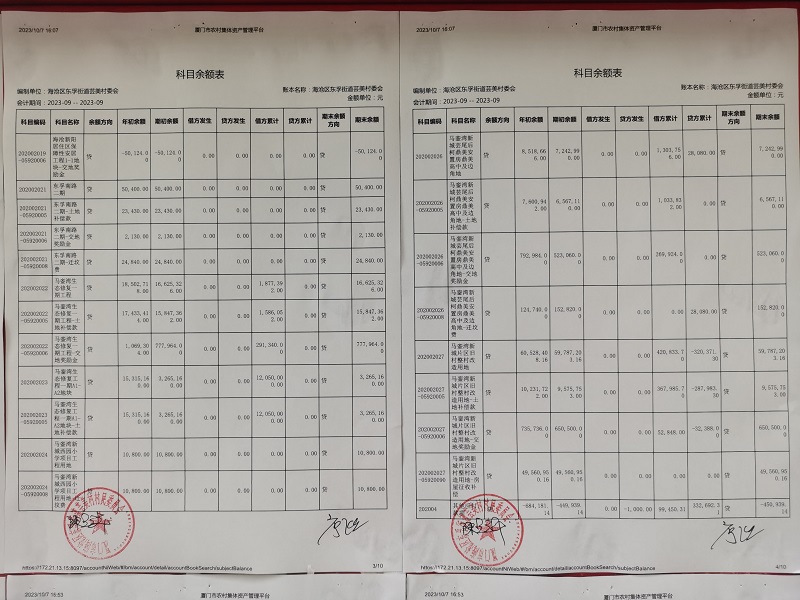 2023/10/7 16:07
厦门市农村集体资产管理平台
科目余额表
编制单位：海沧区东孚街道芸美村委会
账本名称：海沧区东孚街道芸美村委会
会计期间：2023-09 -- 2023-09
金额单位：元
科目编码 科目名称 余额方向 年初余额 期初余额 借方发生 贷方发生 借方累计 贷方累计 期末余额方向 期末余额
202002019-05920006 海沧新阳居住区保障性安居工程1-1地块-交地奖励金 贷 -50,124.00 -50,124.00 0.00 0.00 0.00 0.00 贷 -50,124.00
202002021 东孚南路二期 贷 50,400.00 50,400.00 0.00 0.00 0.00 0.00 贷 50,400.00
202002021-05920005 东孚南路二期-土地补偿款 贷 23,430.00 23,430.00 0.00 0.00 0.00 0.00 贷 23,430.00
202002021-05920006 东孚南路二期-交地奖励金 贷 2,130.00 2,130.00 0.00 0.00 0.00 0.00 贷 2,130.00
202002021-05920008 东孚南路二期-迁坟费 贷 24,840.00 24,840.00 0.00 0.00 0.00 0.00 贷 24,840.00
202002022 马銮湾生态修复一期工程 贷 18,502,718.00 16,625,326.00 0.00 0.00 1,877,392.00 0.00 贷 16,625,326.00
202002022-05920005 马銮湾生态修复一期工程-土地补偿款 贷 17,433,414.00 15,847,362.00 0.00 0.00 1,586,052.00 0.00 贷 15,847,362.00
202002022-05920006 马銮湾生态修复一期工程-交地奖励金 贷 1,069,304.00 777,964.00 0.00 0.00 291,340.00 0.00 贷 777,964.00
202002023 马銮湾生态修复工程一期A1-A2地块 贷 15,315,160.00 3,265,160.00 0.00 0.00 12,050,000.00 0.00 贷 3,265,160.00
202002023-05920005 马銮湾生态修复工程一期A1-A2地块-土地补偿款 贷 15,315,160.00 3,265,160.00 0.00 0.00 12,050,000.00 0.00 贷 3,265,160.00
202002024 马銮湾新城西园小学项目工程用地 贷 10,800.00 10,800.00 0.00 0.00 0.00 0.00 贷 10,800.00
202002024-05920008 马銮湾新城西园小学项目工程用地-迁坟费 贷 10,800.00 10,800.00 0.00 0.00 0.00 0.00 贷 10,800.00
https://172.21.13.15:8097/accountNiWeb/#/bm/account/detail/accountBookSearch/subjectBalance
3/10
2023/10/7 16:07
厦门市农村集体资产管理平台
科目余额表
编制单位：海沧区东孚街道芸美村委会
账本名称：海沧区东孚街道芸美村委会
会计期间：2023-09 -- 2023-09
金额单位：元
科目编码 科目名称 余额方向 年初余额 期初余额 借方发生 贷方发生 借方累计 贷方累计 期末余额方向 期末余额
202002026 马銮湾新城芸尾后柯鼎美安置房鼎美高中及边角地 贷 8,518,666.00 7,242,990.00 0.00 0.00 1,303,756.00 28,080.00 贷 7,242,990.00
202002026-05920005 马銮湾新城芸尾后柯鼎美安置房鼎美高中及边角地-土地补偿款 贷 7,600,942.00 6,567,110.00 0.00 0.00 1,033,832.00 0.00 贷 6,567,110.00
202002026-05920006 马銮湾新城芸尾后柯鼎美安置房鼎美高中及边角地-交地奖励金 贷 792,984.00 523,060.00 0.00 0.00 269,924.00 0.00 贷 523,060.00
202002026-05920008 马銮湾新城芸尾后柯鼎美安置房鼎美高中及边角地-迁坟费 贷 124,740.00 152,820.00 0.00 0.00 0.00 28,080.00 贷 152,820.00
202002027 马銮湾新城片区旧村整村改造用地 贷 60,528,408.16 59,787,203.16 0.00 0.00 420,833.70 -320,371.30 贷 59,787,203.16
202002027-05920005 马銮湾新城片区旧村整村改造用地-土地补偿款 贷 10,231,722.00 9,575,753.00 0.00 0.00 367,985.70 -287,983.30 贷 9,575,753.00
202002027-05920006 马銮湾新城片区旧村整村改造用地-交地奖励金 贷 735,736.00 650,500.00 0.00 0.00 52,848.00 -32,388.00 贷 650,500.00
202002027-05920090 马銮湾新城片区旧村整村改造用地-房屋征收补偿 贷 49,560,950.16 49,560,950.16 0.00 0.00 0.00 0.00 贷 49,560,950.16
202004 贷 -684,181.14 -449,939.14 0.00 -1,000.00 99,450.31 332,692.31 贷 -450,939.14
https://172.21.13.15:8097/accountNiWeb/#/bm/account/detail/accountBookSearch/subjectBalance
4/10
2023/10/7 16:53
厦门市农村集体资产管理平台
2023/10/7 16:53
厦门市农村集体资产管理平台